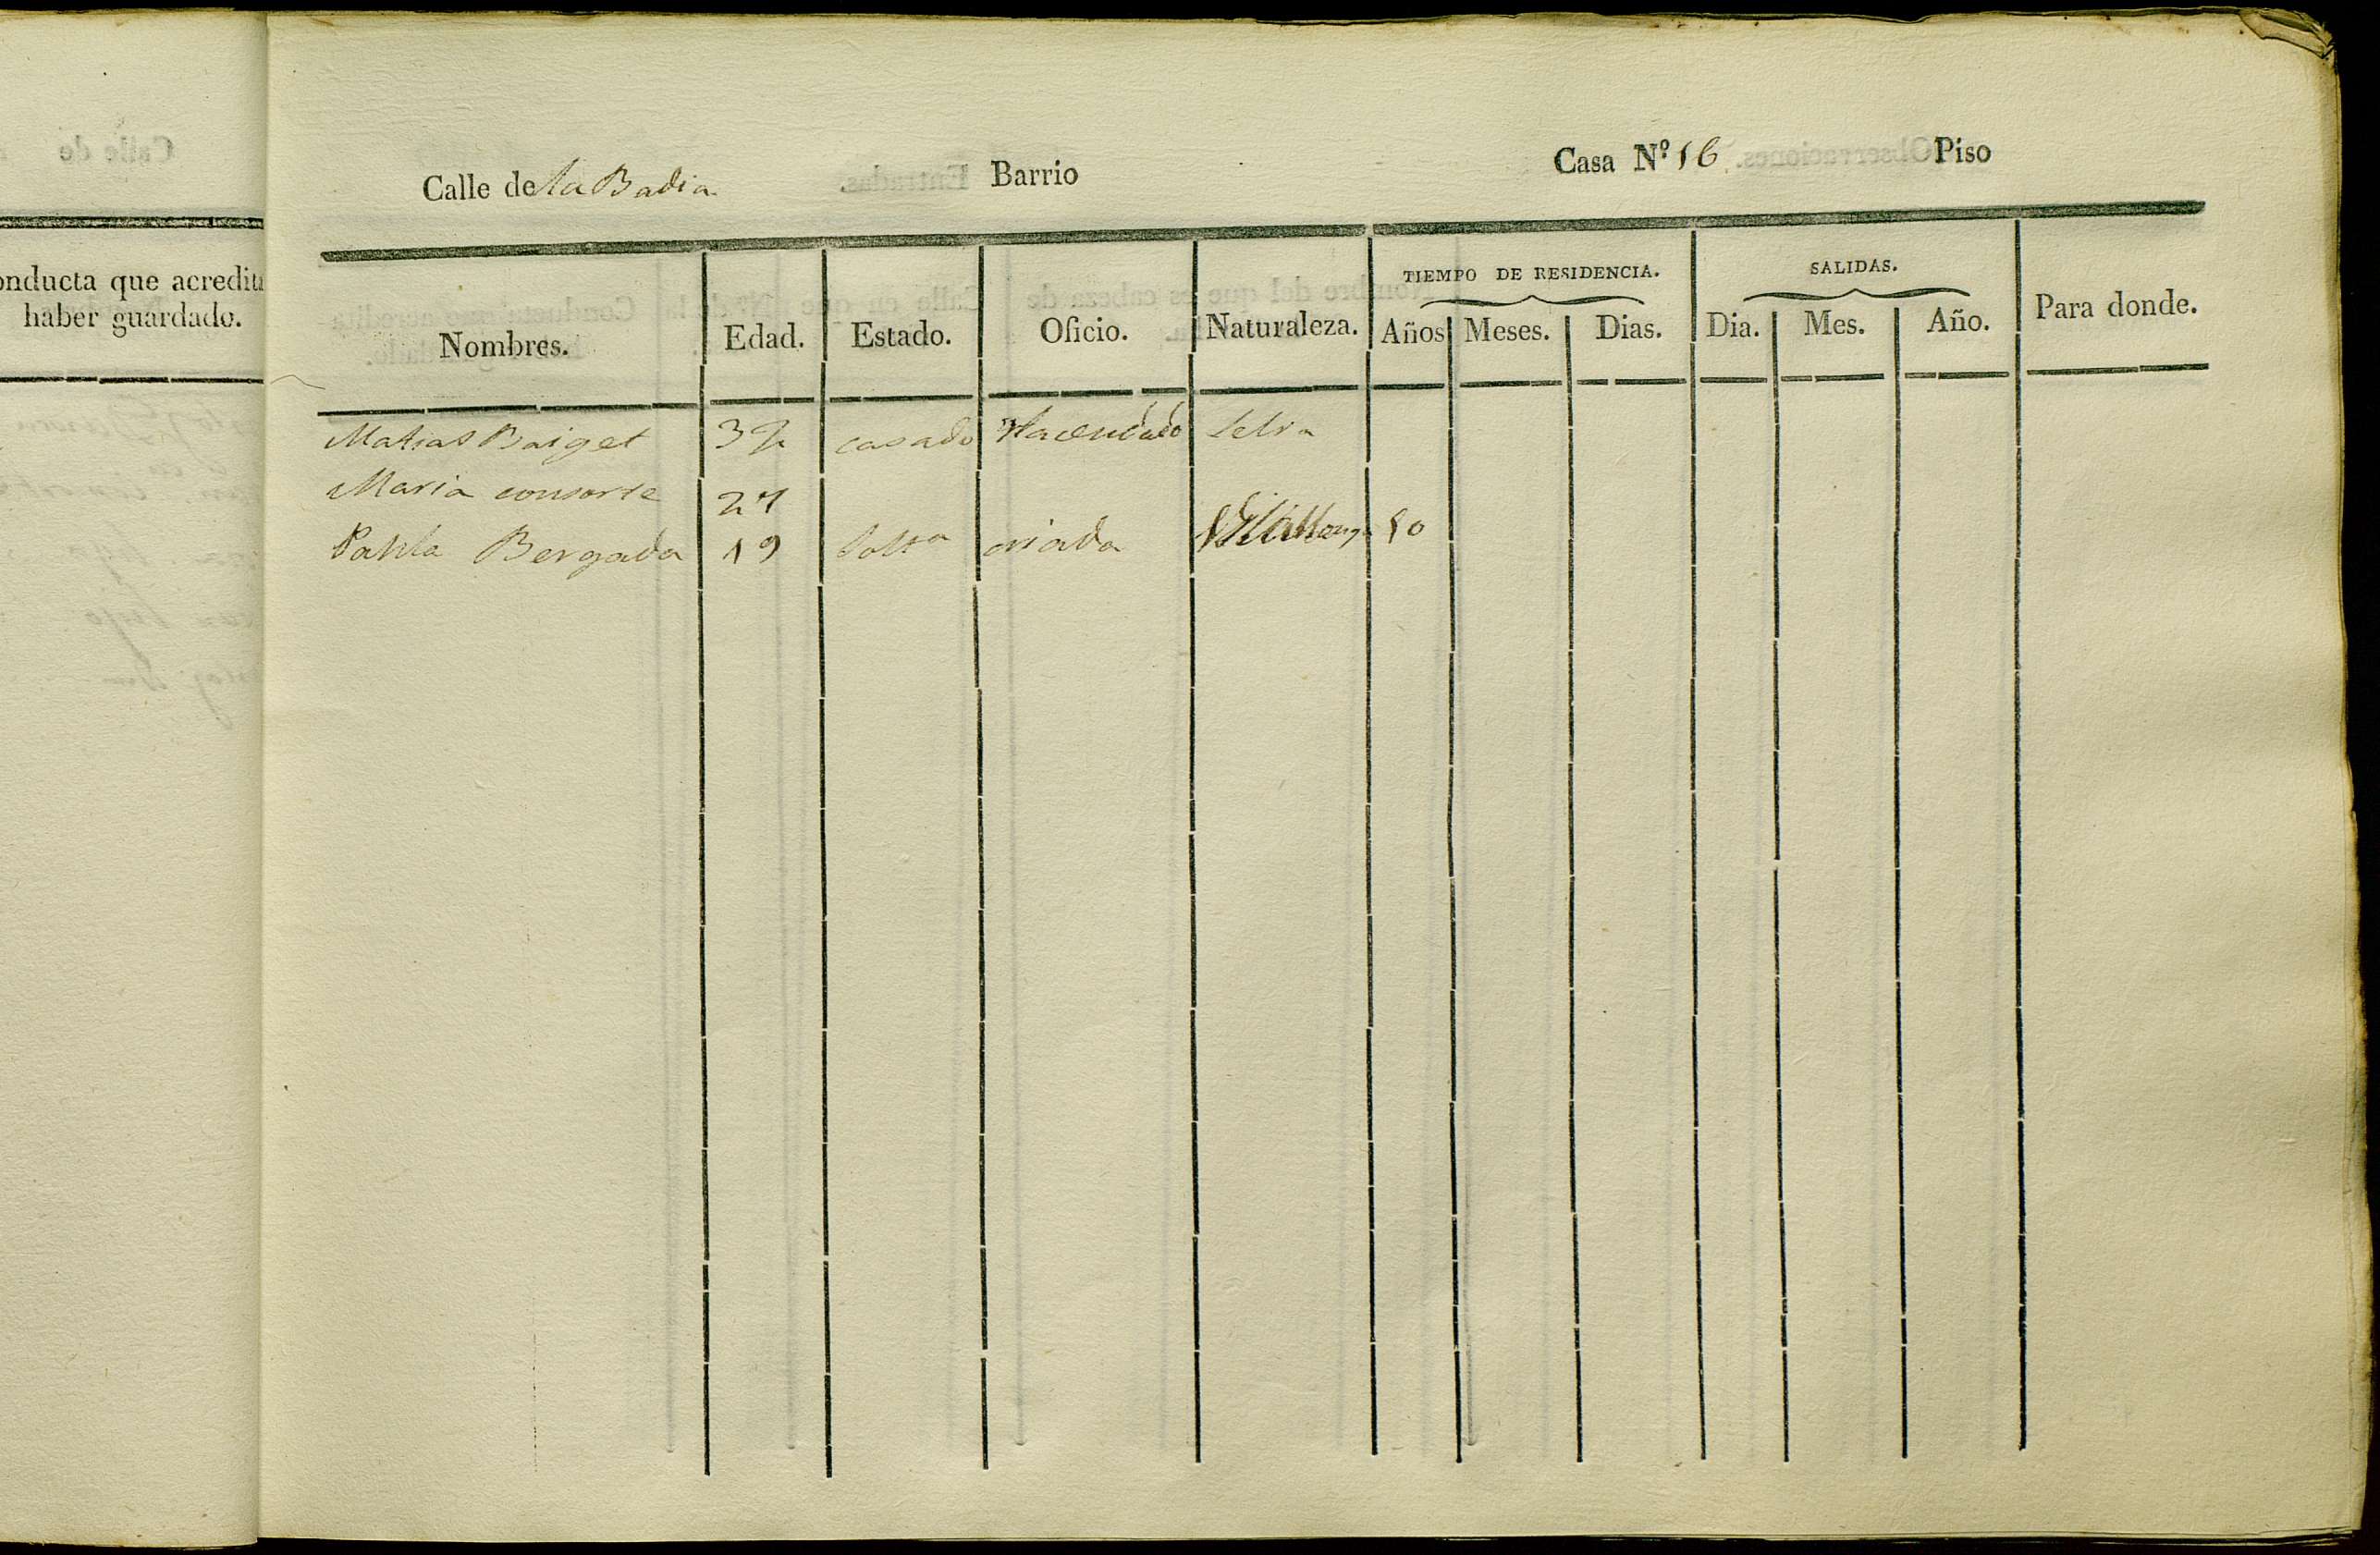 onducta que acredita
haber guardado.
Calle de la Badia Barrio Casa Nº 16 Piso
TIEMPO DE RESIDENCIA. SALIDAS.
Nombres. Edad. Estado. Oficio. Naturaleza. Años Meses. Dias. Dia. Mes. Año. Para donde.
Matias Baiget 32 casado Hacendado Selva
Maria consorte 27
Pabla Bergada 19 Solta criada 10